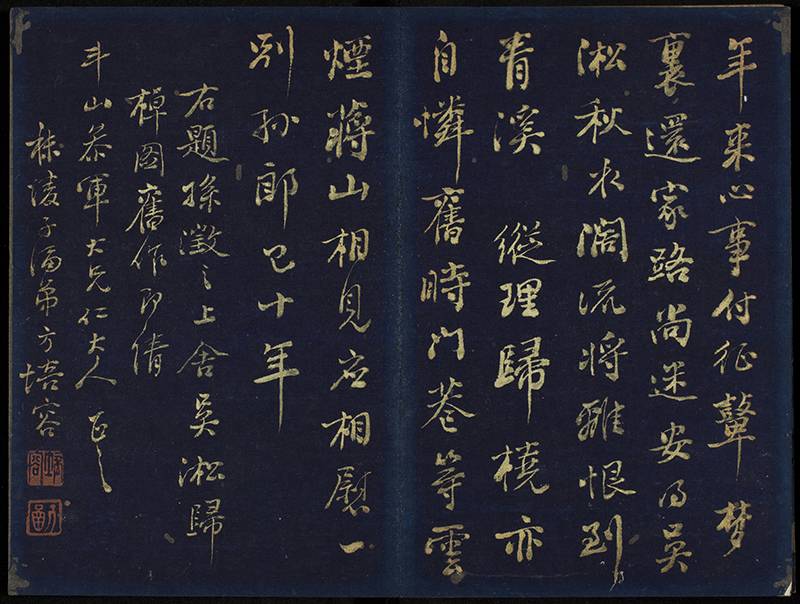 年來心事付征鼙夢
裏還家路尚迷安得吳
淞秋水闊流將離恨到
青溪 縱理歸橈亦
自憐舊時門巷等雲
煙蔣山相見應相慰一
別孫郎已十年
右題孫澂之上舍吳淞歸
櫂圖舊作即倩
斗山叅軍大兄仁大人正之
秣陵子涵弟方培容